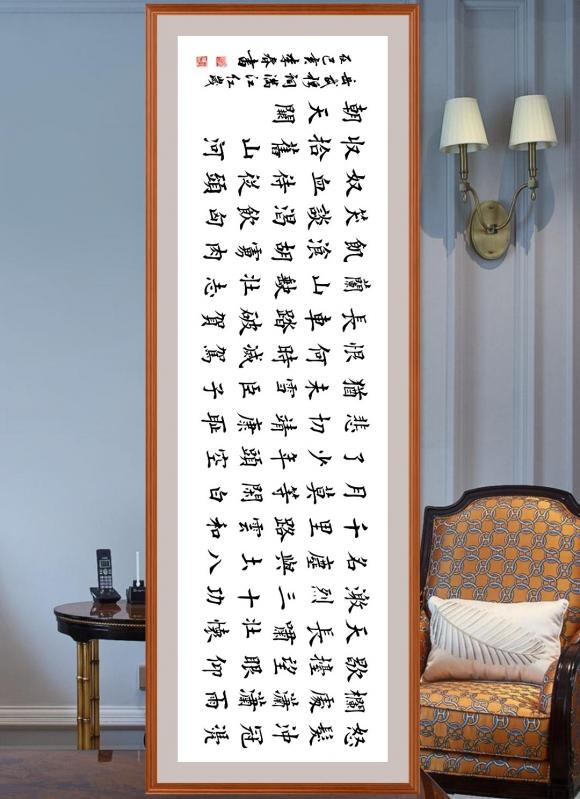 怒髮沖冠凭
欄處瀟瀟雨
歇擡望眼仰
天長嘯壯懷
激烈三十功
名塵與土八
千里路雲和
月莫等閑白
了少年頭空
悲切靖康恥
猶未雪臣子
恨何時滅駕
長車踏破賀
蘭山缺壯志
飢飡胡虜肉
笑談渴飲匈
奴血待從頭
收拾舊山河
朝天闕
岳武穆詞滿江红歲
在己亥李書